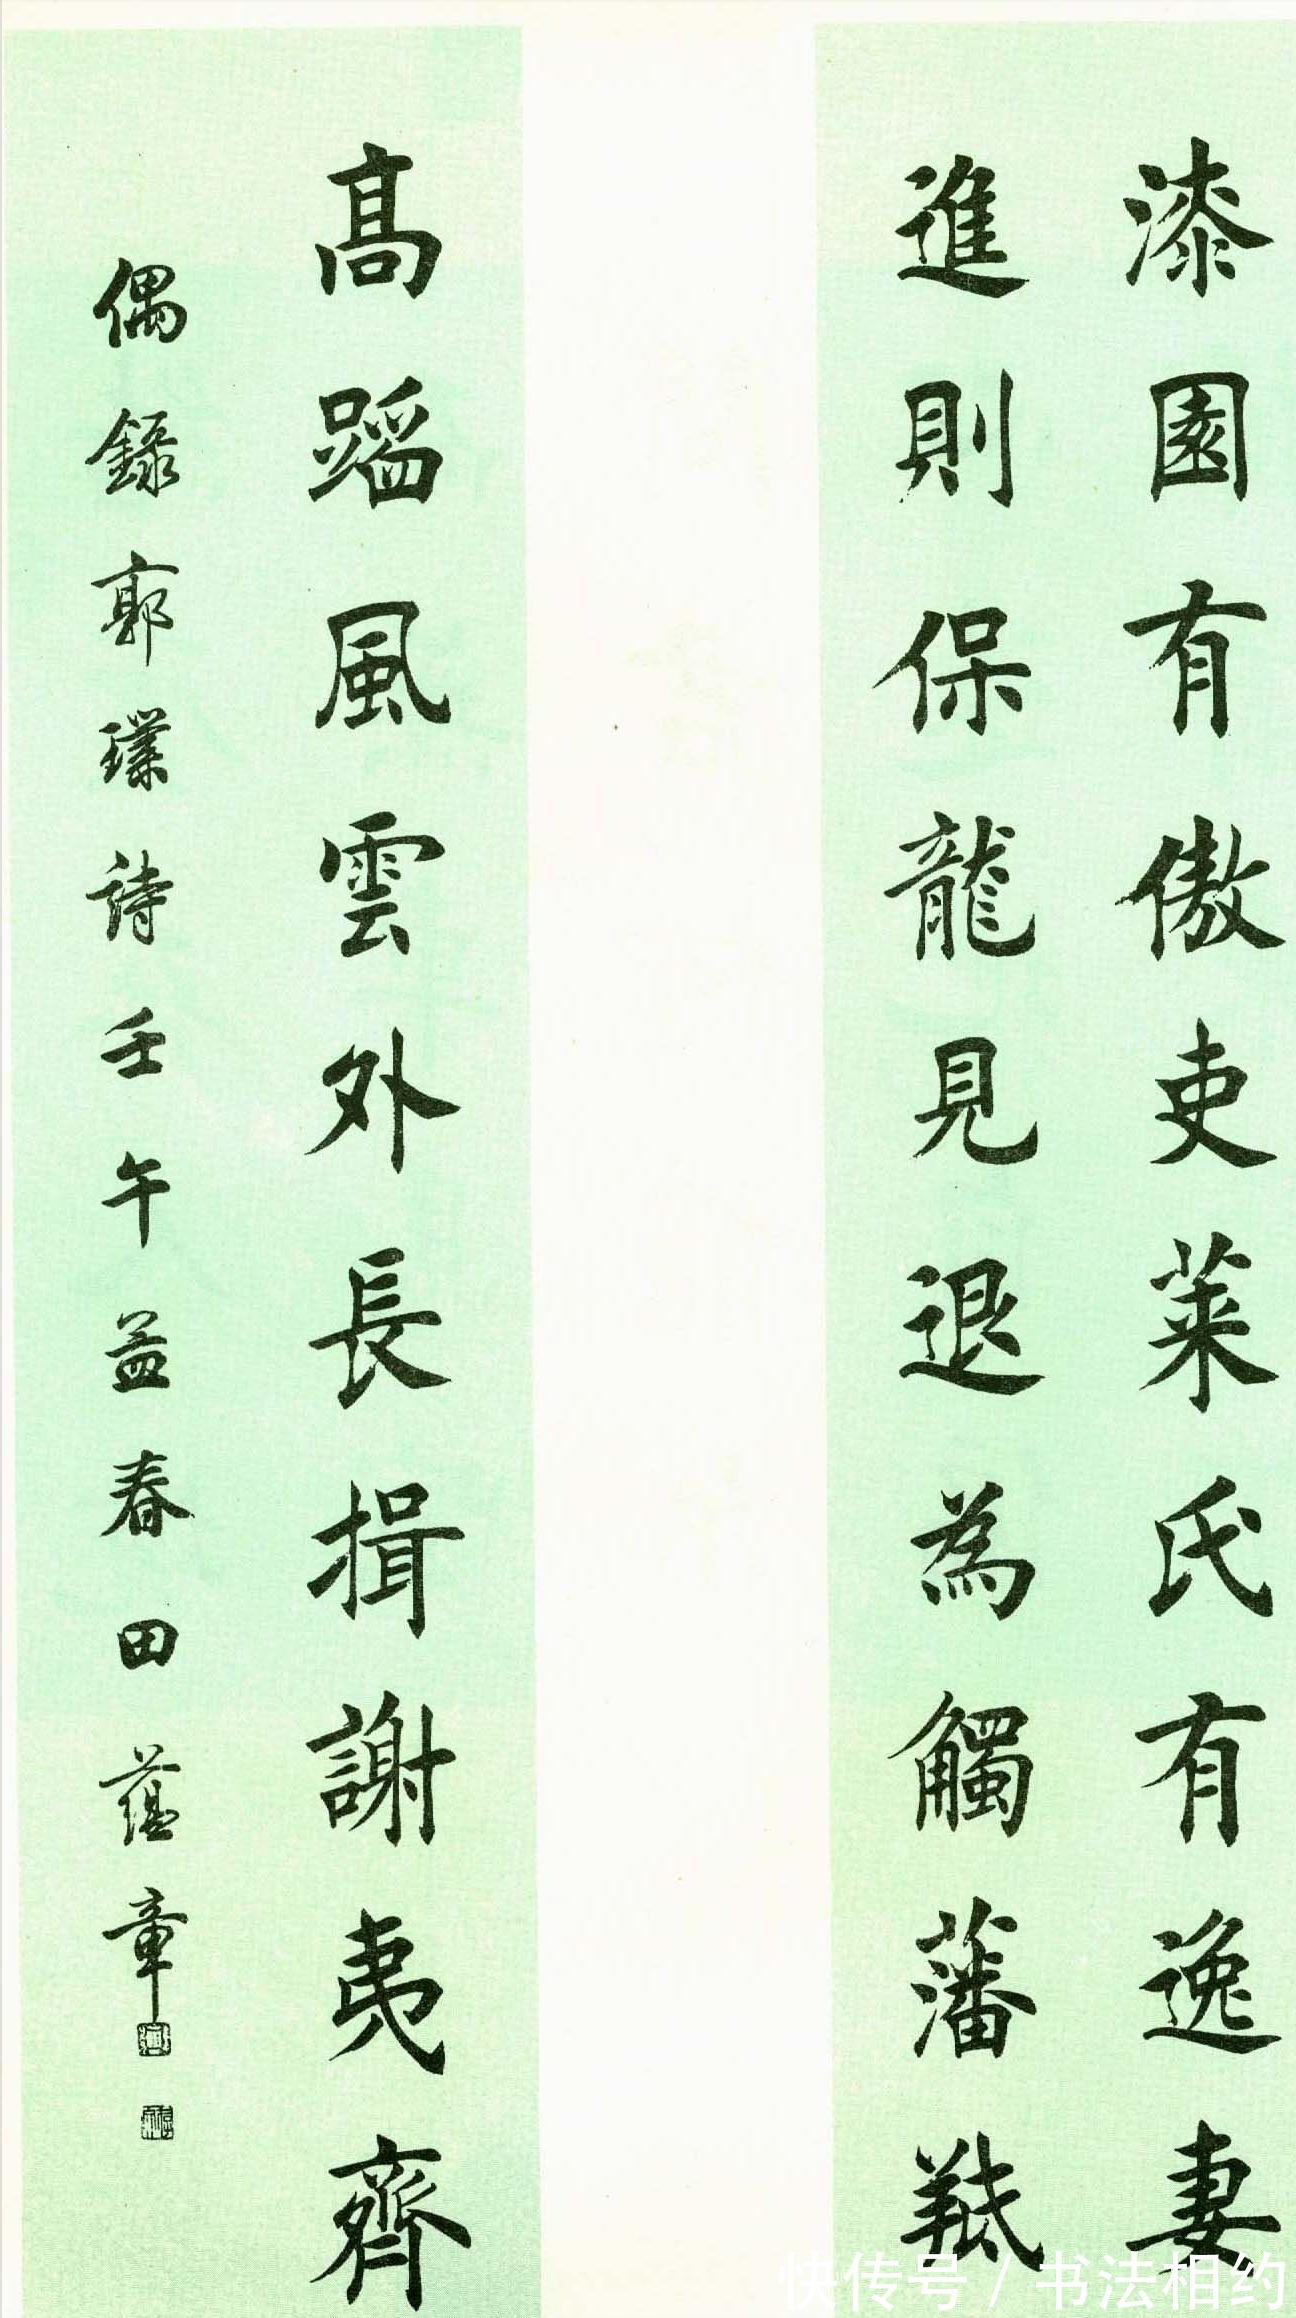 漆園有傲吏萊氏有逸妻
進則保龍見退為觸藩羝
高蹈風雲外長揖謝夷齊
偶錄郭璞詩壬午益春田蘊章
快传号/书法相约